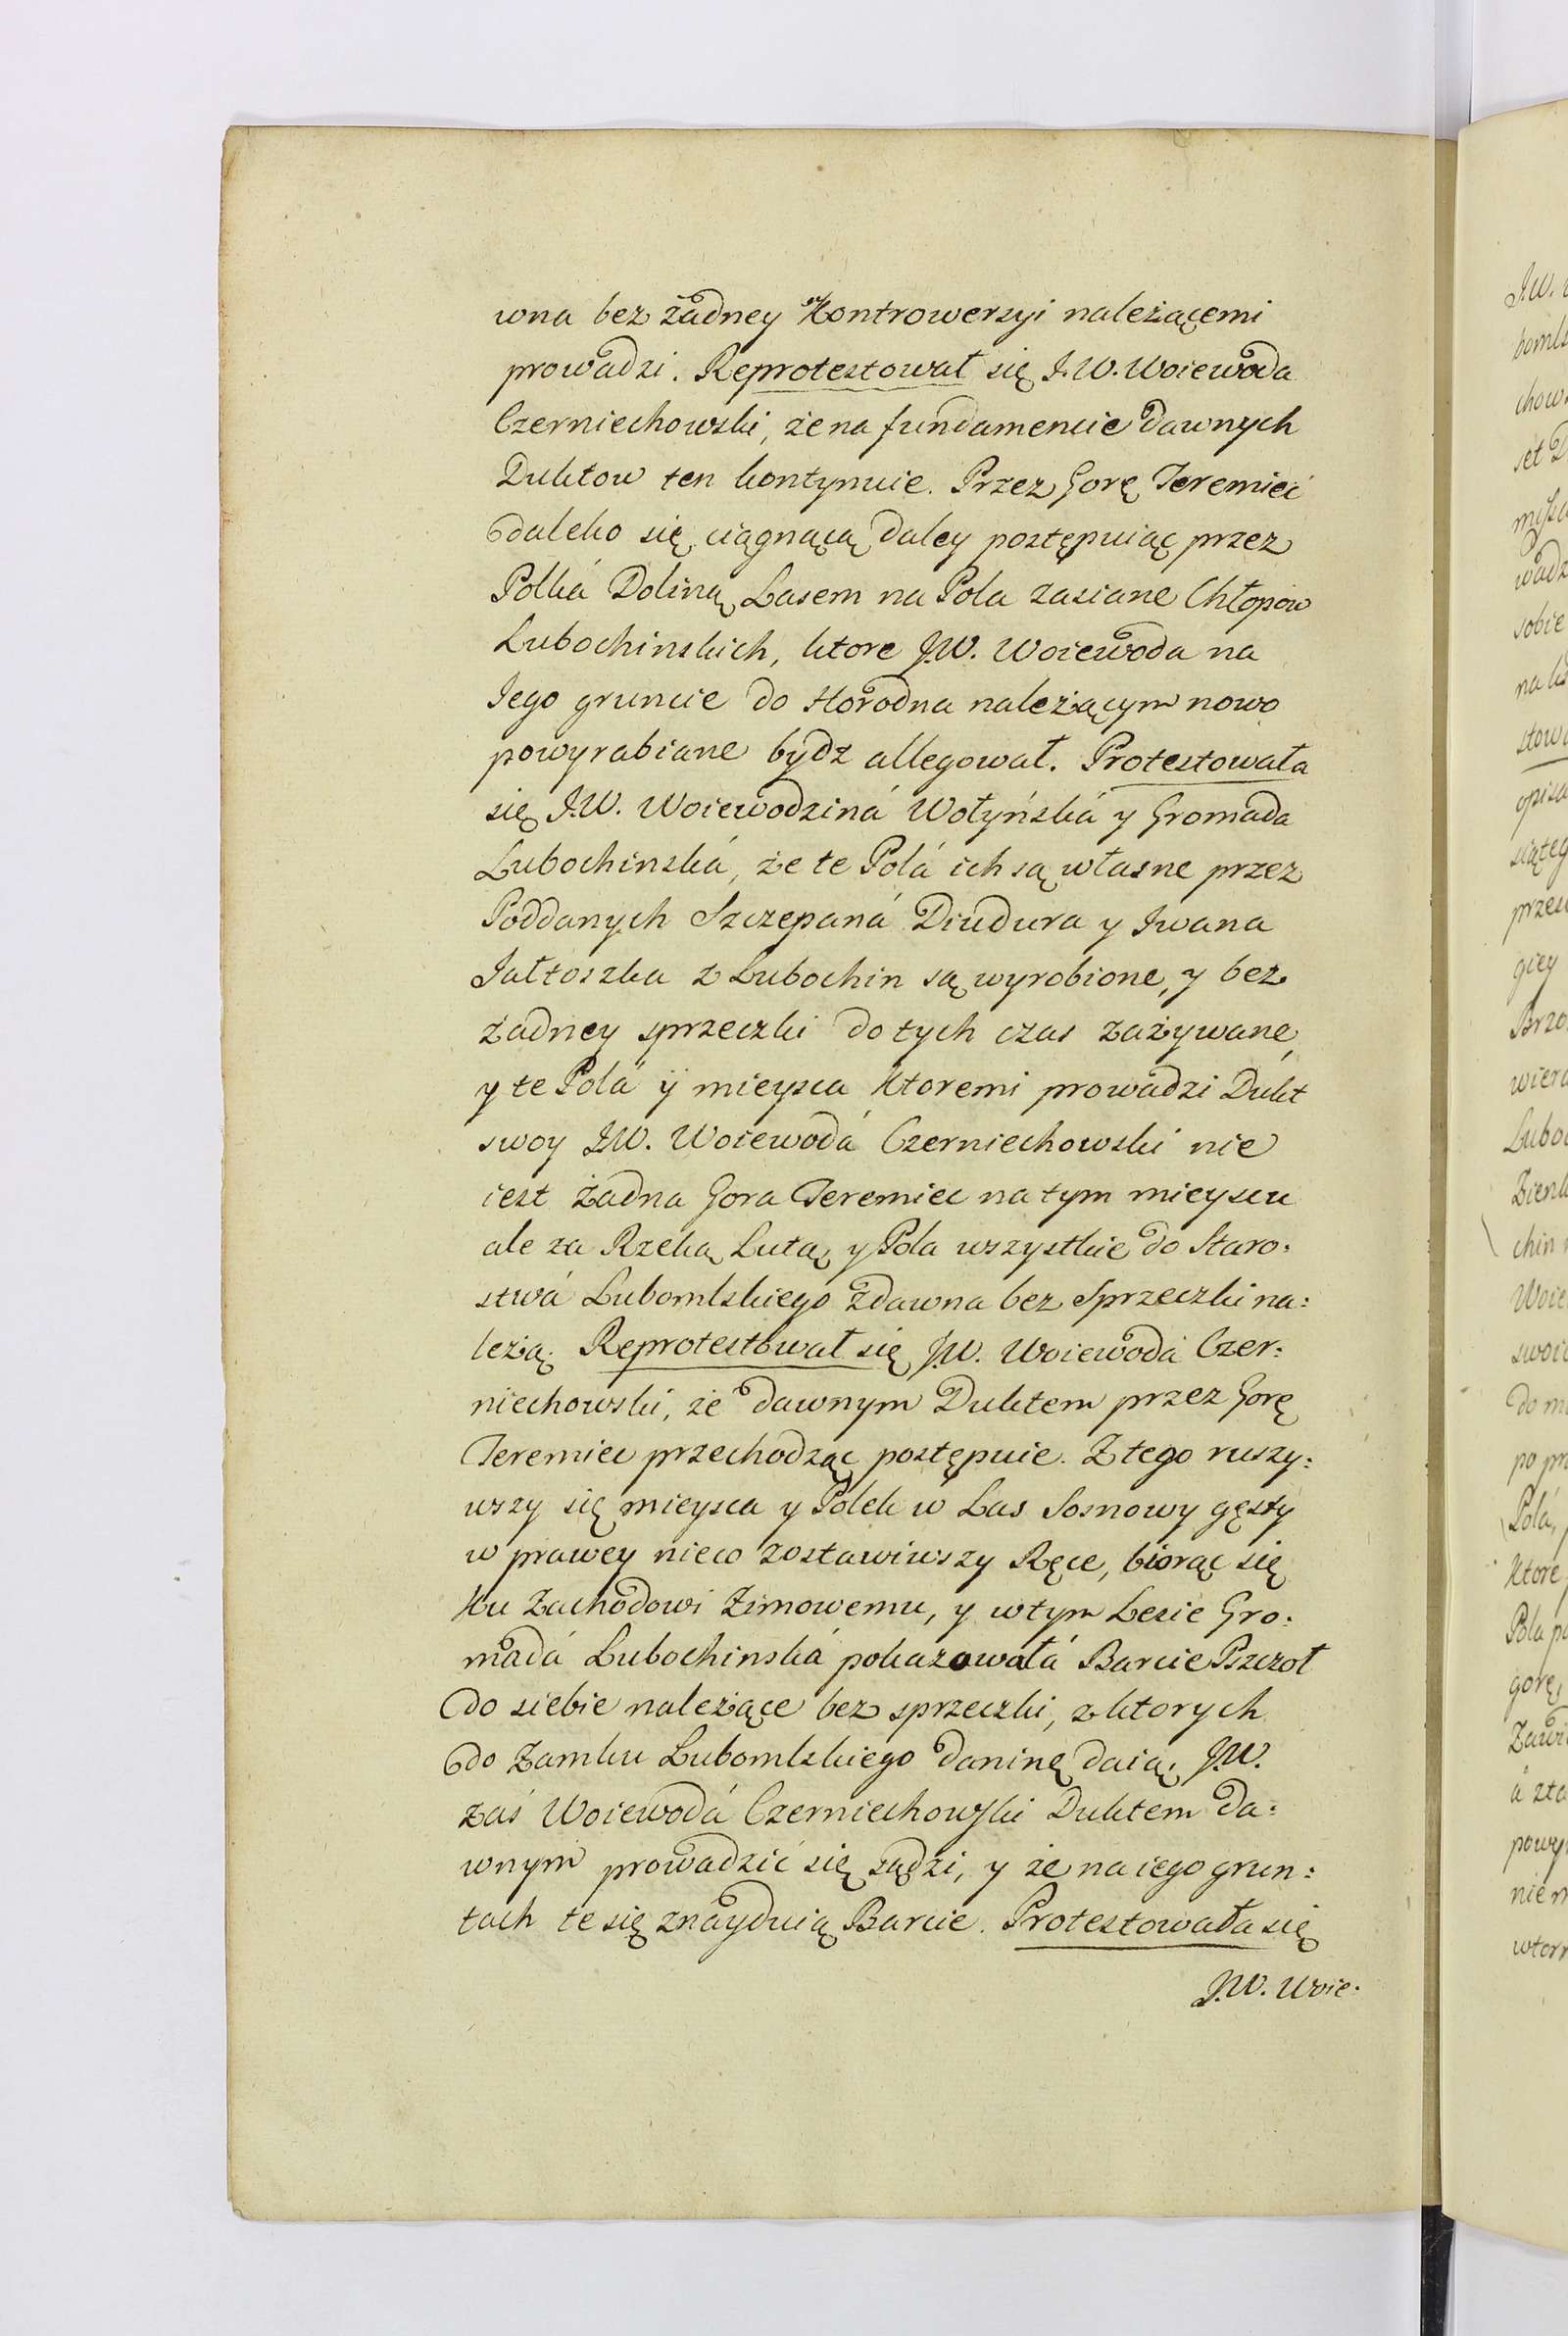 wna bez żadney Kontrowersyi należącemi
prowadzi. Reprotestował się J.W. Woiewoda
Czerniechowski, że na fundamencie dawnych
Duktow ten kontynuie. Przez Gorę Jeremiec
daleko się ciągnącą daley postępuiąc przez
Polká Doliną Lasem na Pola zasiane Chłopow
Lubochinskich, ktore J.W. Woiewoda na
Jego gruncie do Horodna należącym nowo
powyrabiane bydz allegował. Protestowała
się J.W. Woiewodziná Wołyńská y Gromada
Lubochinská, że te Polá ich są własne przez
Poddanych Szczepaná Diudura y Jwana
Jałtoszka z Lubochin są wyrobione, y bez
żadney sprzeczki do tych czas zażywane,
y te Polá ÿ mieysca Ktoremi prowadzi Dukt
swoy J.W. Woiewodá Czerniechowski nie
iest żadna Gora Jeremiec na tym mieyscu
ale za Rzeką Lutą y Pola wszystkie do Staro:
stwá Lubomlskiego zdawna bez Sprzeczki na:
leżą. Reprotestował się J.W. Woiewoda Czer:
niechowski, że dawnym Duktem przez Gorę
Jeremiec przechodząc postępuie. Z tego ruszy:
wszy się mieysca y Polek w Las Sosnowy gęsty
w prawey nieco zostawiwszy Ręce, biorąc się
ku Zachodowi Zimowemu, y w tym Lesie Gro:
madá Lubochinská pokazowałá Barcie Pszczoł
do siebie należące bez sprzeczki, z ktorych
do Zamku Lubomlskiego daninę daią. J.W.
zaś Woiewodá Czerniechowski Duktem da:
wnym prowadzić się sądzi, y że na iego grun:
tach te się znayduią Barcie. Protestowała się
J.W. Woie: